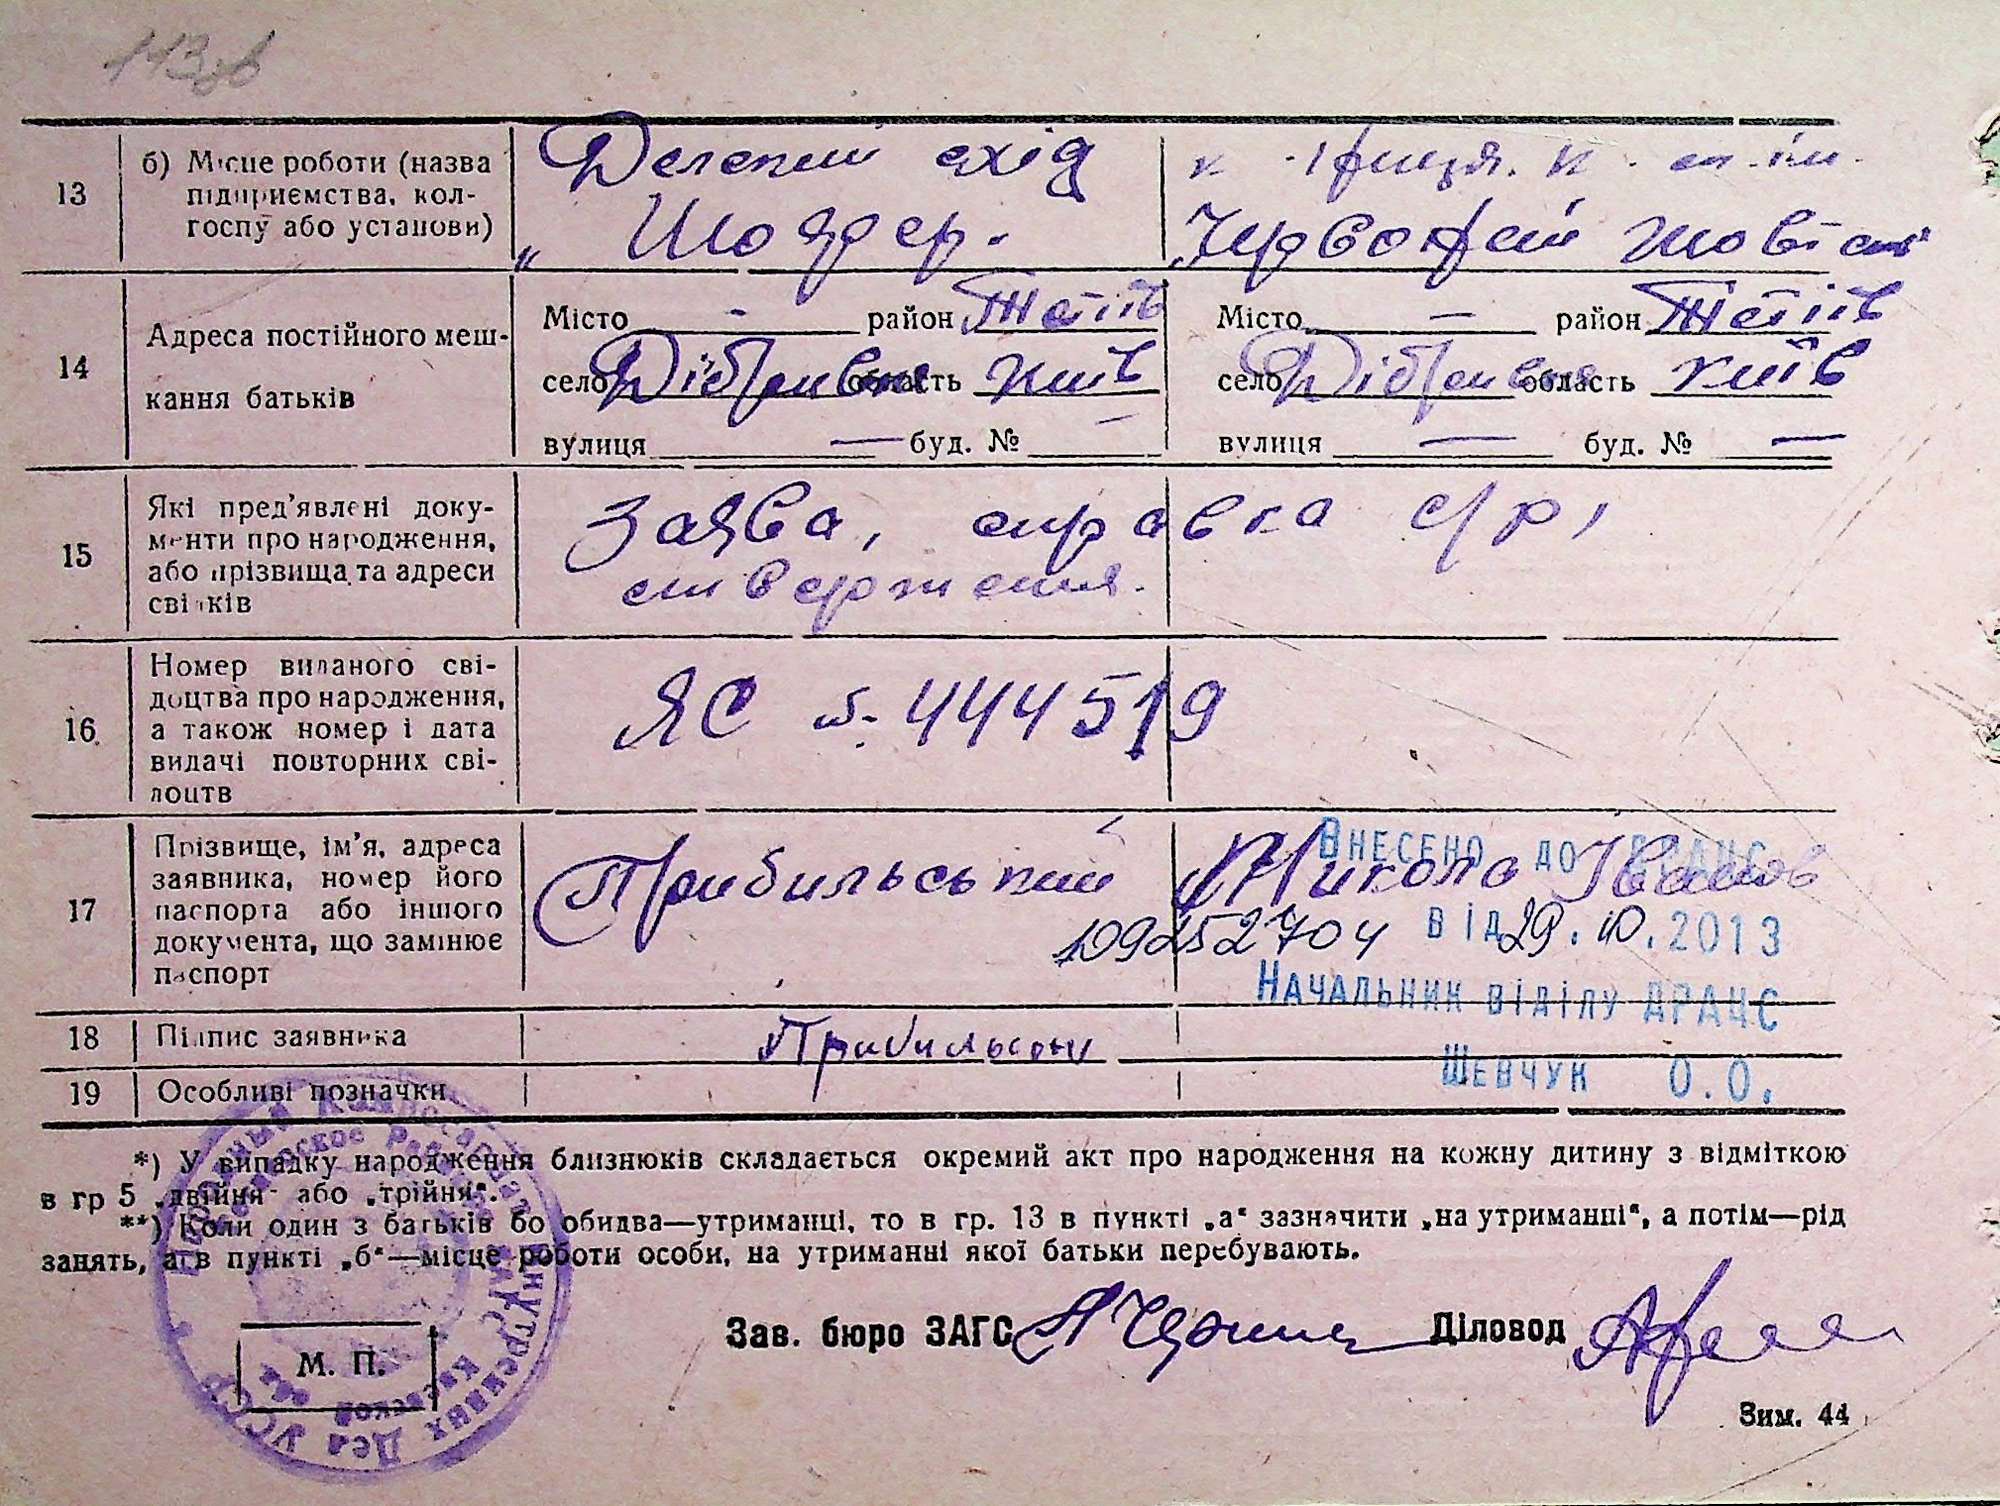 143зв
13 б) Місце роботи (назва підприємства, колгоспу або установи)
Далекий схід
к-гриця. к-сп ім.
" Шофер.
Червоний жовтень
14 Адреса постійного мешкання батьків
Місто - район Тетіїв
Місто — район Тетіїв
село Дібрівка область Київ
село Дібрівка область Київ
вулиця — буд. № —
вулиця — буд. № —
15 Які пред'явлені документи про народження, або прізвища та адреси свідків
Заява, справка с/р,
ствержения.
16 Номер виданого свідоцтва про народження, а також номер і дата видачі повторних свідоцтв
ЯС № 444519
17 Прізвище, ім'я, адреса заявника, номер його паспорта або іншого документа, що замінює паспорт
Прибильський Микола Іванов
Внесено до ДРАЦС
109252704 від 29.10.2013
Начальник відділу ДРАЦС
18 Підпис заявника
Прибильский
Шевчук О.О.
19 Особливі позначки
*) У випадку народження близнюків складається окремий акт про народження на кожну дитину з відміткою
в гр 5 „двійня" або „трійня".
**) Коли один з батьків бо обидва—утриманці, то в гр. 13 в пункті „а" зазначити „на утриманні", а потім—рід
занять, а в пункті „б"—місце роботи особи, на утриманні якої батьки перебувають.
Зав. бюро ЗАГС
Діловод
М. П.
Зим. 44